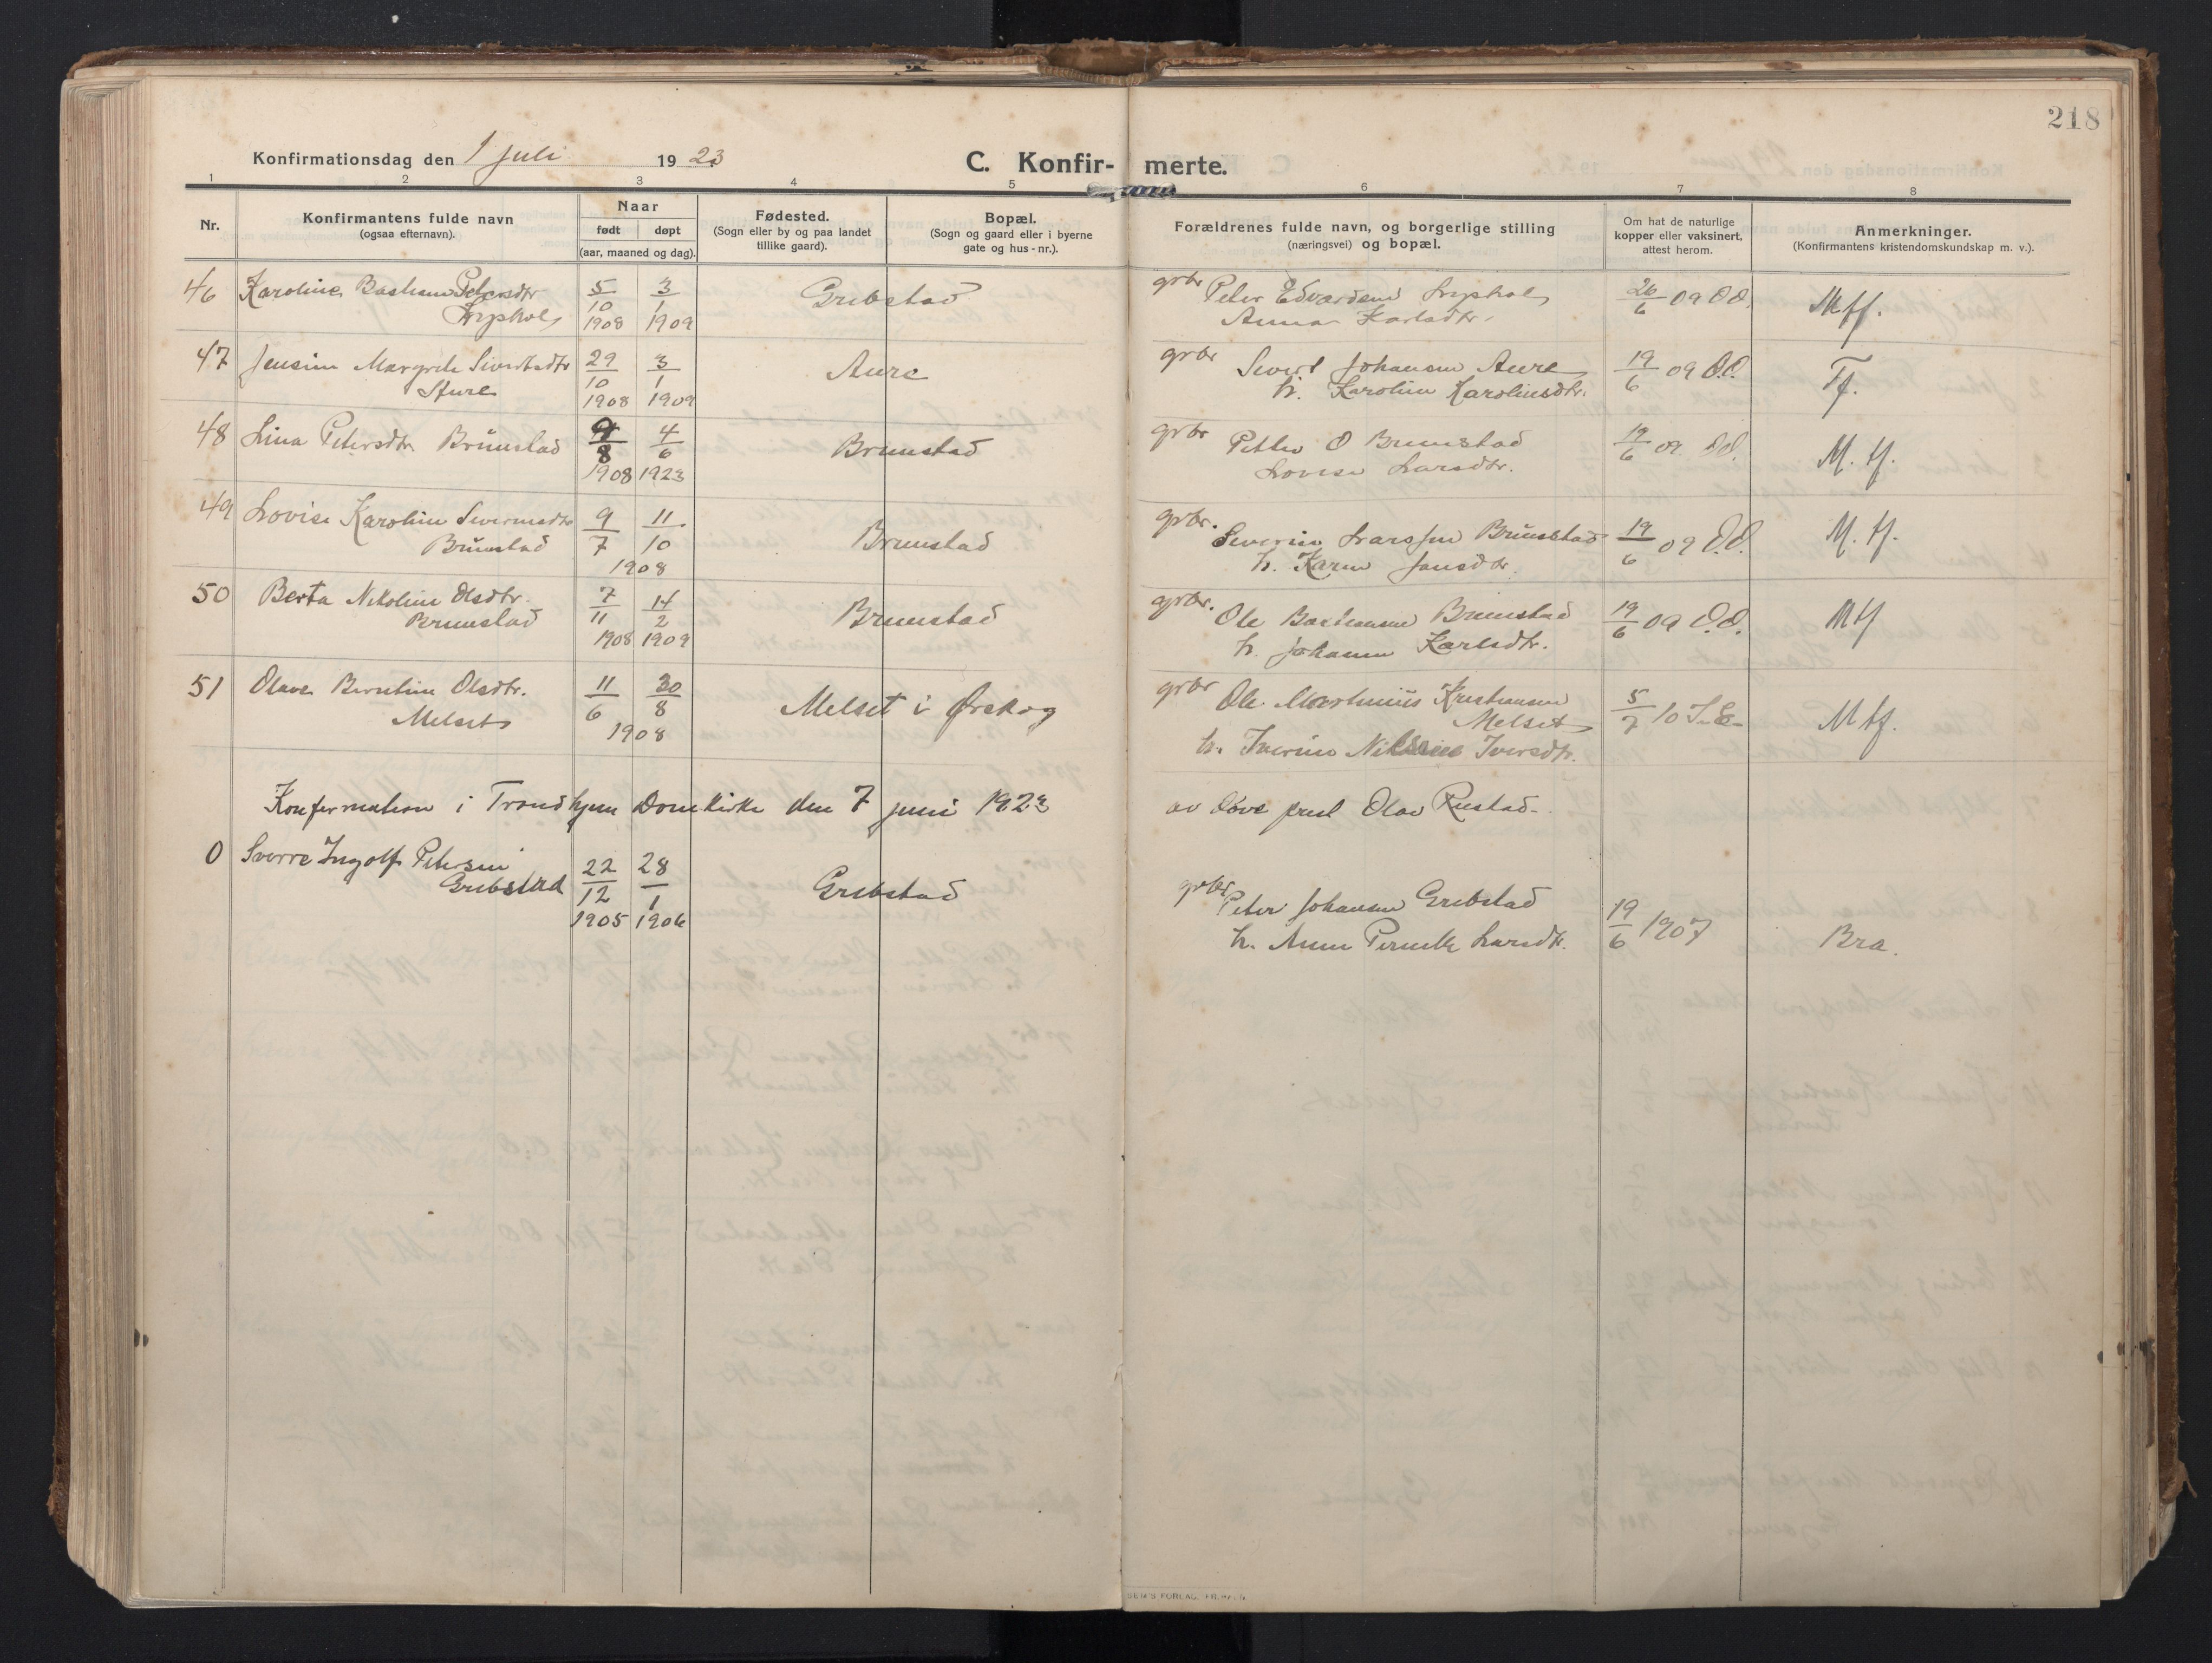 218
Konfirmationsdag den 1 juli 1923
C. Konfir- merte.
1 2 3 4 5 6 7 8
Nr.
Konfirmantens fulde navn
(ogsaa efternavn).
Naar
født døpt
(aar, maaned og dag).
Fødested.
(Sogn eller by og paa landet
tillike gaard).
Bopæl.
(Sogn og gaard eller i byerne
gate og hus - nr.).
Forældrenes fulde navn, og borgerlige stilling
(næringsvei) og bopæl.
Om hat de naturlige
kopper eller vaksinert,
attest herom.
Anmerkninger.
(Konfirmantens kristendomskundskap m. v.).
46 Karoline Petersdtr 5/10 1908 3/1 1909 Grebstad grbr Peter Edvardsen 26/6 09 O.O. Mtf.
Anna Karlsdtr.
47 Jensine Margrete Sivertsdtr 29/10 1908 3/1 1909 Aure grbr Sivert Johansen Aure 19/6 09 O.O. Tf.
h. Karoline Karolinsdtr.
48 Lina Petersdtr Brunstad 9/8 1908 4/6 1923 Brunstad grbr Petter O Brunstad 19/6 09 O.O. M. tf.
Lovise Larsdtr.
49 Lovise Karoline Severinsdtr 9/7 11/10 1908 Brunstad grbr. Severin Larssen Brunstad 19/6 09 O.O. M. tf.
Brunstad h. Karen Jensdtr.
50 Berta Nikoline Olsdtr. 7/11 1908 14/2 1909 Brunstad grbr. Ole Bastiansen Brunstad 19/6 09 O.O. Mtf
Brunstad h. Johanne Karlsdtr.
51 Olave Berntine Olsdtr. 11/6 30/8 1908 Melset i Ørskog grbr Ole Martinius Kristiansen 5/7 10 Mtf.
Melset Melset
h. Iverine Iversdtr.
Konfirmation i Trondhjem Domkirke den 7 juni 1923 av døve prest Olav Rustad.
0 Sverre Ingolf Petersen 22/12 1905 28/1 1906 Grebstad grbr Peter Johansen Grebstad 19/6 1907 Bra.
Grebstad h. Anne Pernille Larsdtr.